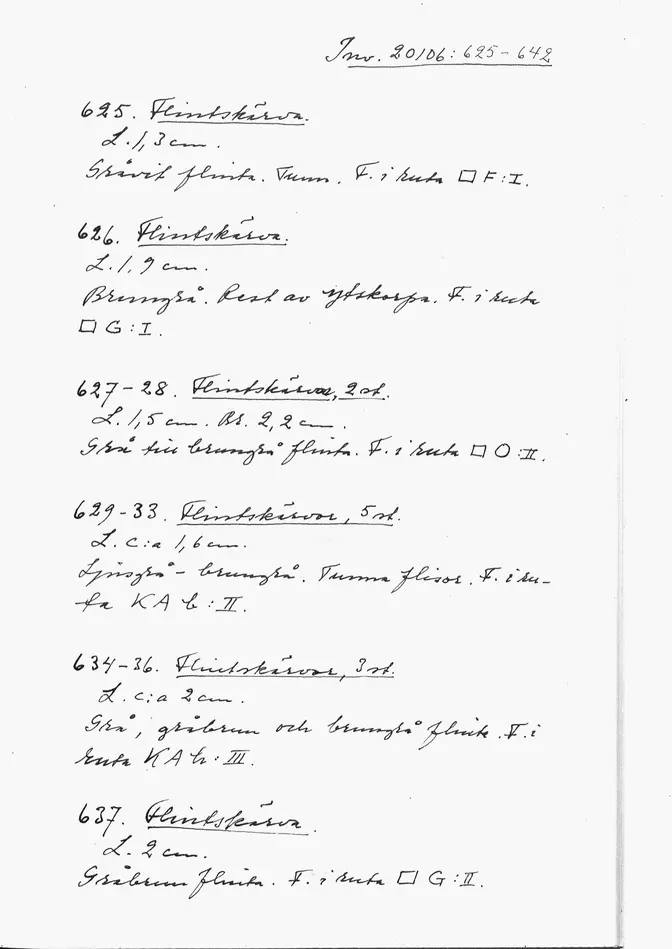 Inv. 20106: 625-642
625. Flintskärva.
L. 1,3 cm.
Gråvit flinta. Tunn. F. i ruta □ F:I.
626. Flintskärva.
L. 1,9 cm.
Brungrå. Rest av ytskorpa. F. i ruta
□ G:I.
627-28. Flintskärvor, 2 st.
L. 1,5 cm. Br. 2,2 cm.
Grå till brungrå flinta. F. i ruta □ O:II.
629-33. Flintskärvor, 5 st.
L. c:a 1,6 cm.
Ljusgrå - brungrå. Tunna flisor. F. i ru-
ta KA b:II.
634-36. Flintskärvor, 3 st.
L. c:a 2 cm.
Grå, gråbrun och brungrå flinta. F. i
ruta KA h:III.
637. Flintskärva.
L. 2 cm.
Gråbrun flinta. F. i ruta □ G:II.